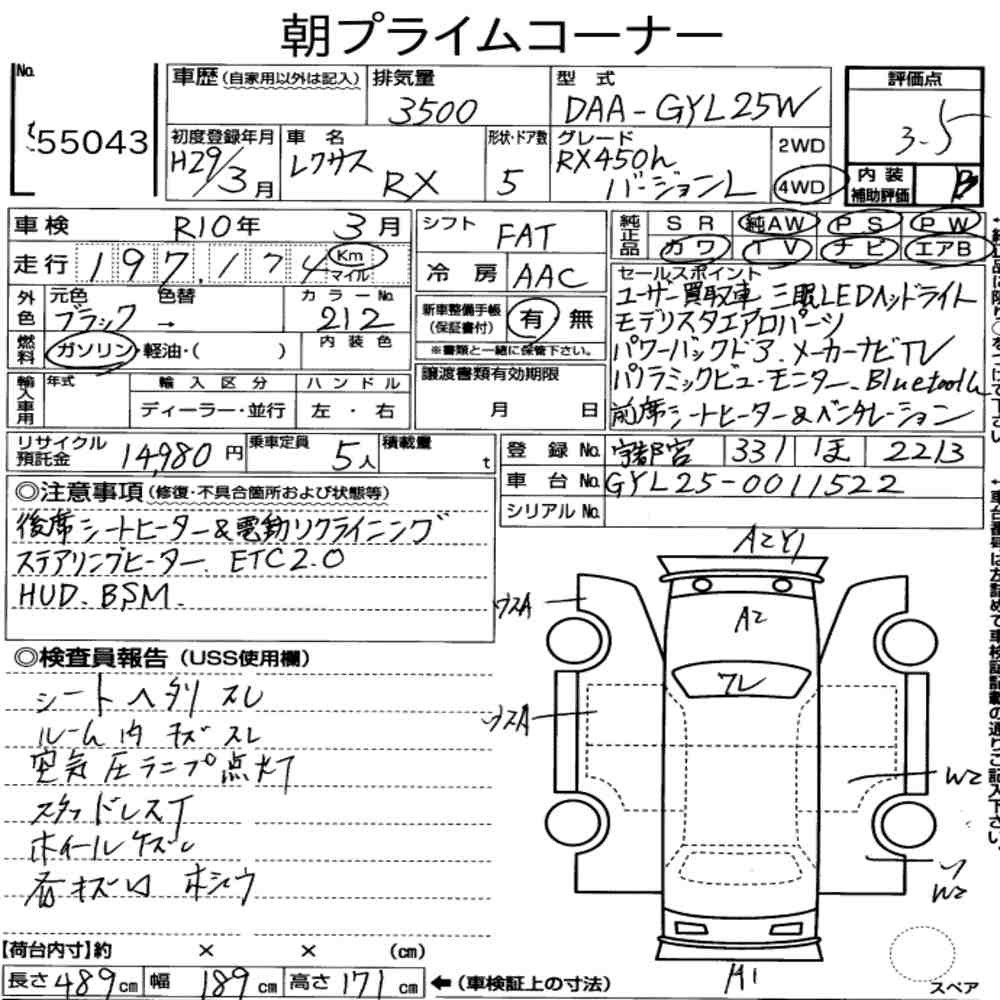 朝プライムコーナー
No.
55043
車歴(自家用以外は記入)
排気量
3500
型 式
DAA-GYL25W
評価点
3.5
初度登録年月
H29/3月
車 名
レクサス RX
形状・ドア数
5
グレード
RX450h
バージョンL
2WD
4WD
内 装
補助評価
B
車 検
R10年 3月
走 行
197,174 Km
マイル
シフト
FAT
冷 房
AAC
純正品
S R 純AW P S P W
カワ T V ナ ビ エアB
外色
元色
ブラック →
色替
カラーNo.
212
燃料
ガソリン・軽油・( )
内 装 色
新車整備手帳
(保証書付)
有 無
※書類と一緒に保管下さい。
輸入車用
年式
輸 入 区 分
ディーラー・並行
ハ ン ド ル
左 ・ 右
譲渡書類有効期限
月 日
セールスポイント
ユーザー買取車 三眼LEDヘッドライト
モデリスタエアロパーツ
パワーバックドア.メーカーナビTV
パノラミックビュー・モニター.Bluetooth
前席シートヒーター&ベンチレーション
リサイクル
預託金
14,980円
乗車定員
5人
積載量
t
登 録 No.
宇都宮 331 ほ 2213
車 台 No.
GYL25-0011522
シリアル No.
◎注意事項(修復・不具合箇所および状態等)
後席シートヒーター&電動リクライニング
ステアリングヒーター. ETC2.0
HUD. BSM.
◎検査員報告(USS使用欄)
シートヘタリ スレ
ルーム内 キズ スレ
空気圧ランプ点灯
スタッドレスT
ホイールケズレ
各キズ凹 ホシュウ
A2Y1
A2
ワレ
ウスA
ウスA
W2
W2
H1
スペア
【荷台内寸】約 × × (cm)
長さ 489cm 幅 189cm 高さ 171cm ←(車検証上の寸法)